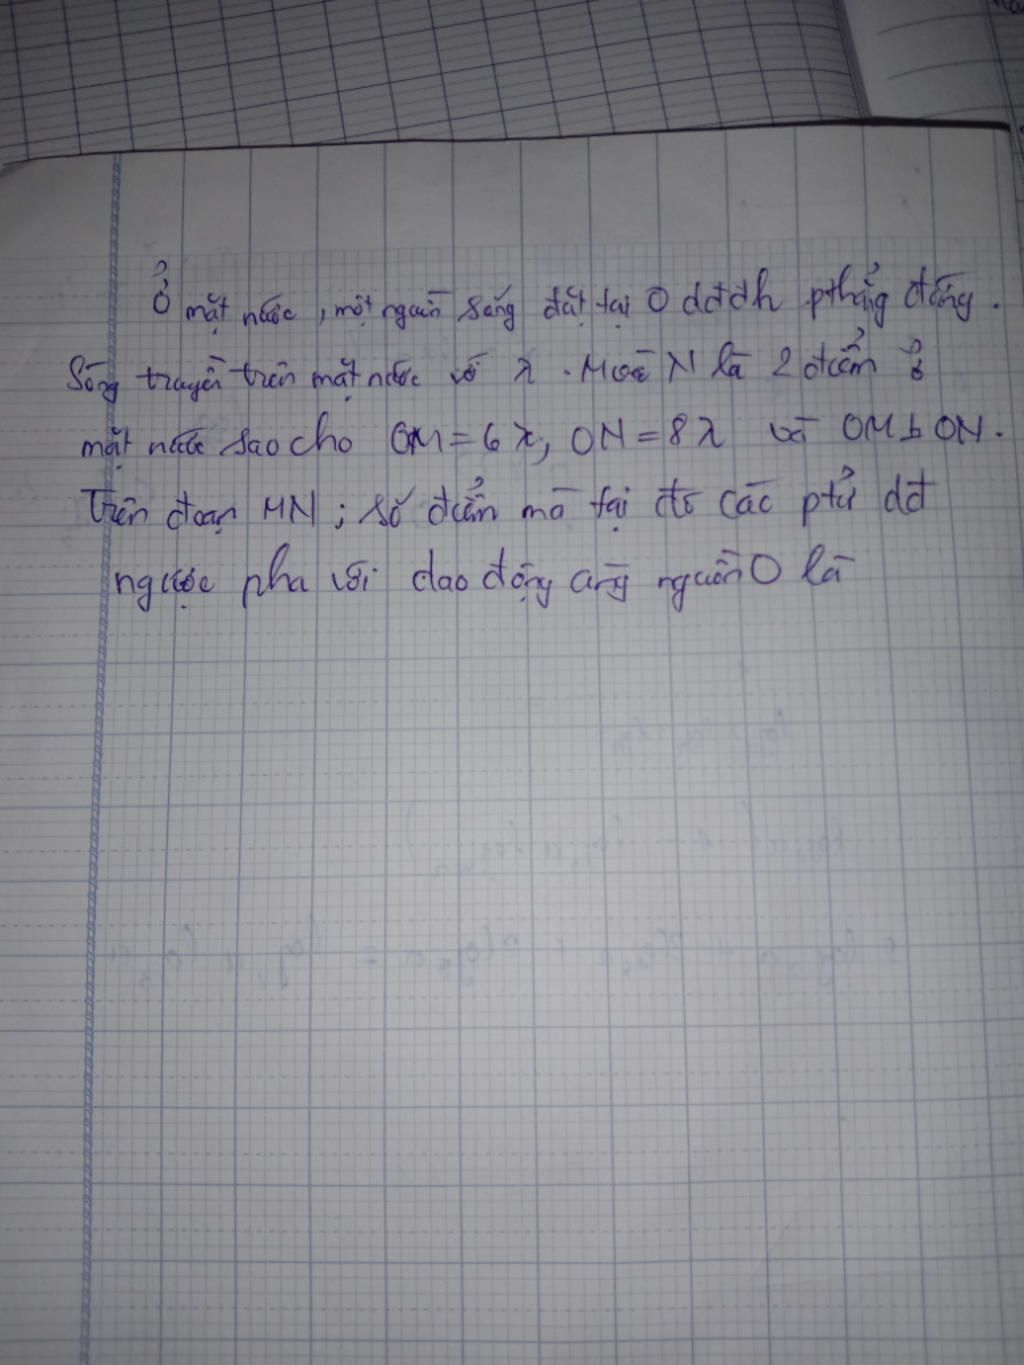 Ở mặt nước, một nguồn sóng đặt tại O dđđh pthẳng đứng.
Sóng truyền trên mặt nước vớ λ. M và N là 2 điểm ở
mặt nước sao cho OM = 6λ, ON = 8λ và OM ⊥ ON.
Trên đoạn MN; số điểm mà tại đó các ptử dđ
ngược pha với dao động của nguồn O là